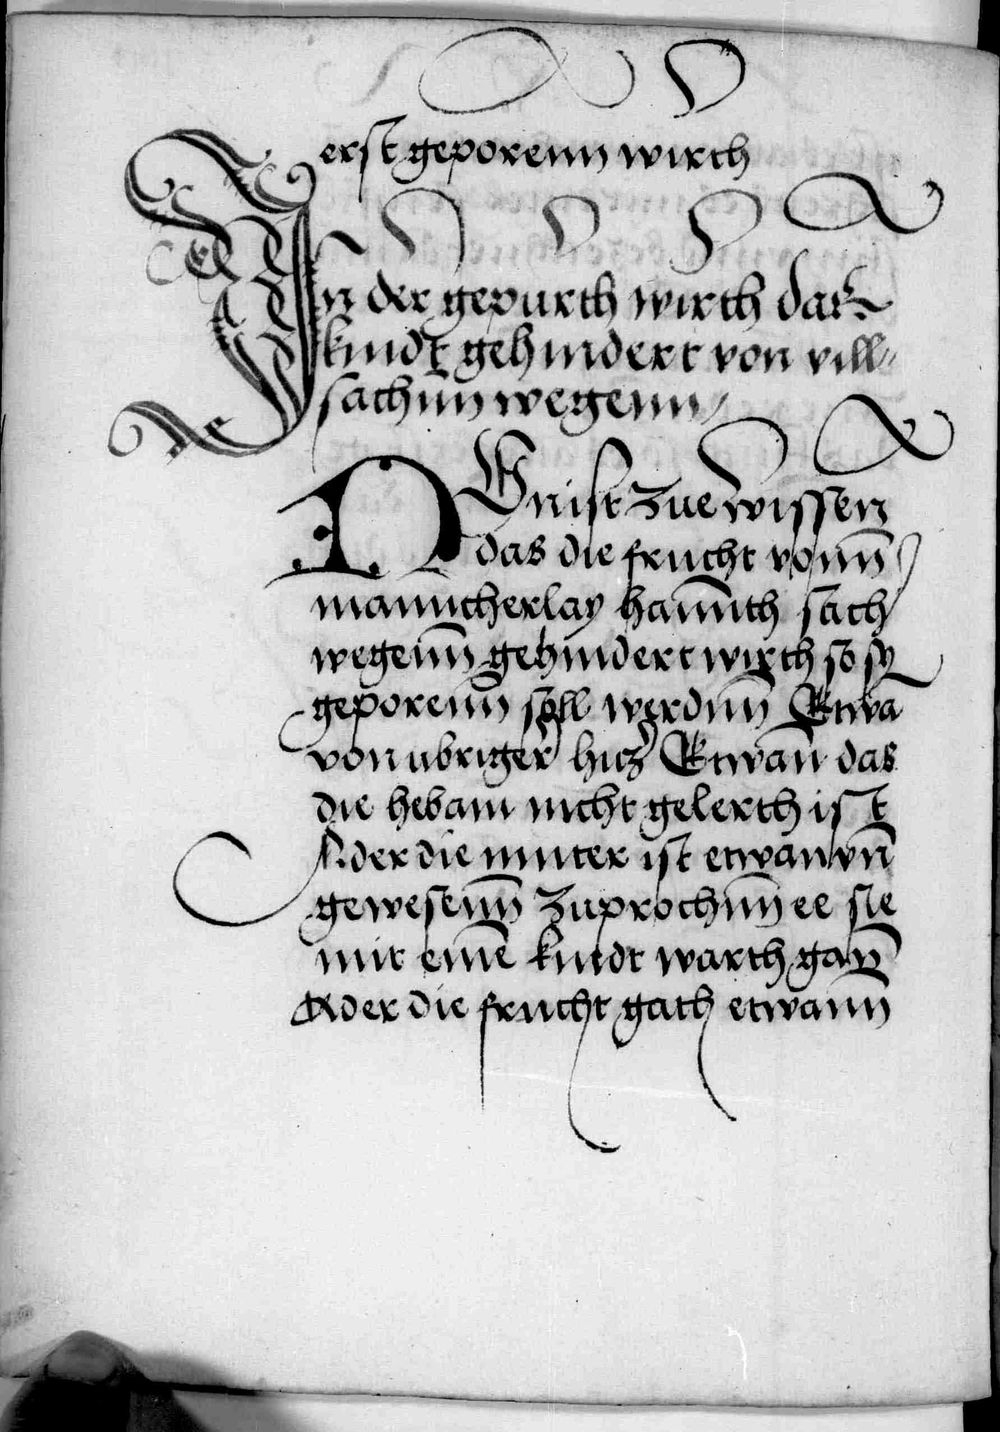 erst geporenn wirth
In der gepurth wirth das
kindt gehindert von vill
sachnn wegenn
NUn ist zue wissen
das die frucht vonn̄
mannicherlay hann̄th sach
wegenn̄ gehindert wirth so sy
geporenn̄ soll werdnn̄ Etwa
von ubriger hicz Etwan̄ das
die hebam nicht gelerth ist
Ader die muter ist etwan vn̄
gewesenn̄ zuprochnn̄ ee sie
mit eine̅ kindt warth gan̄
Ader die frucht gath etwann̄